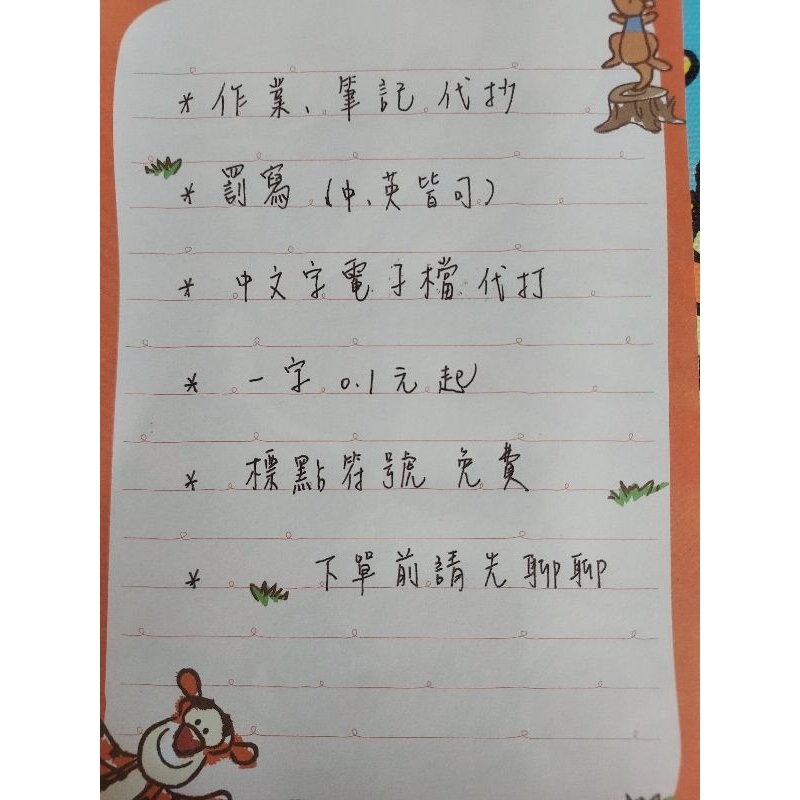 * 作業、筆記代抄
* 罰寫(中、英皆可)
* 中文字電子檔代打
* 一字 0.1元起
* 標點符號免費
* 下單前請先聊聊